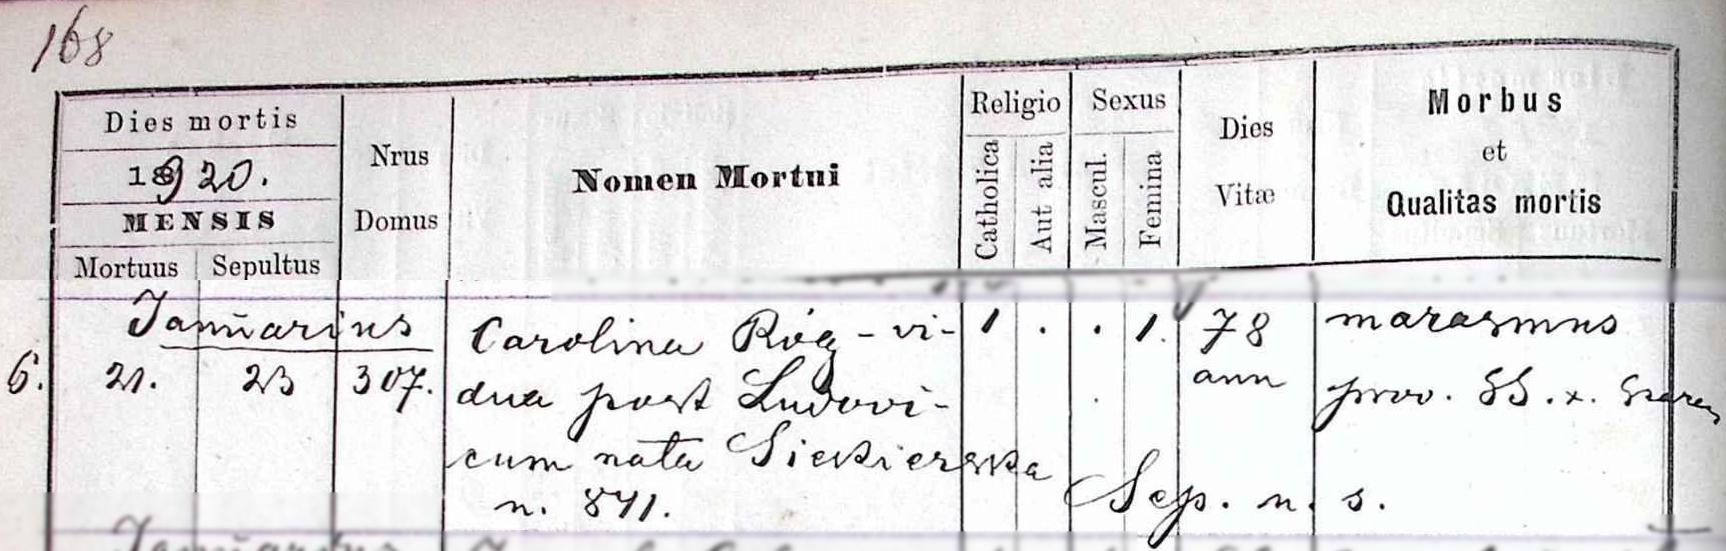 168
Dies mortis
1920.
MENSIS
Mortuus Sepultus
Nrus
Domus
Nomen Mortui
Religio
Catholica
Aut alia
Sexus
Mascul.
Femina
Dies
Vitæ
Morbus
et
Qualitas mortis
Januarius
6. 21. 23 307.
Carolina Róg - vi-
dua post Ludovi-
cum nata Siekierska
n. 841.
1 . . 1.
78
ann
marasmus
prov. SS. x.
Sep. n. s.